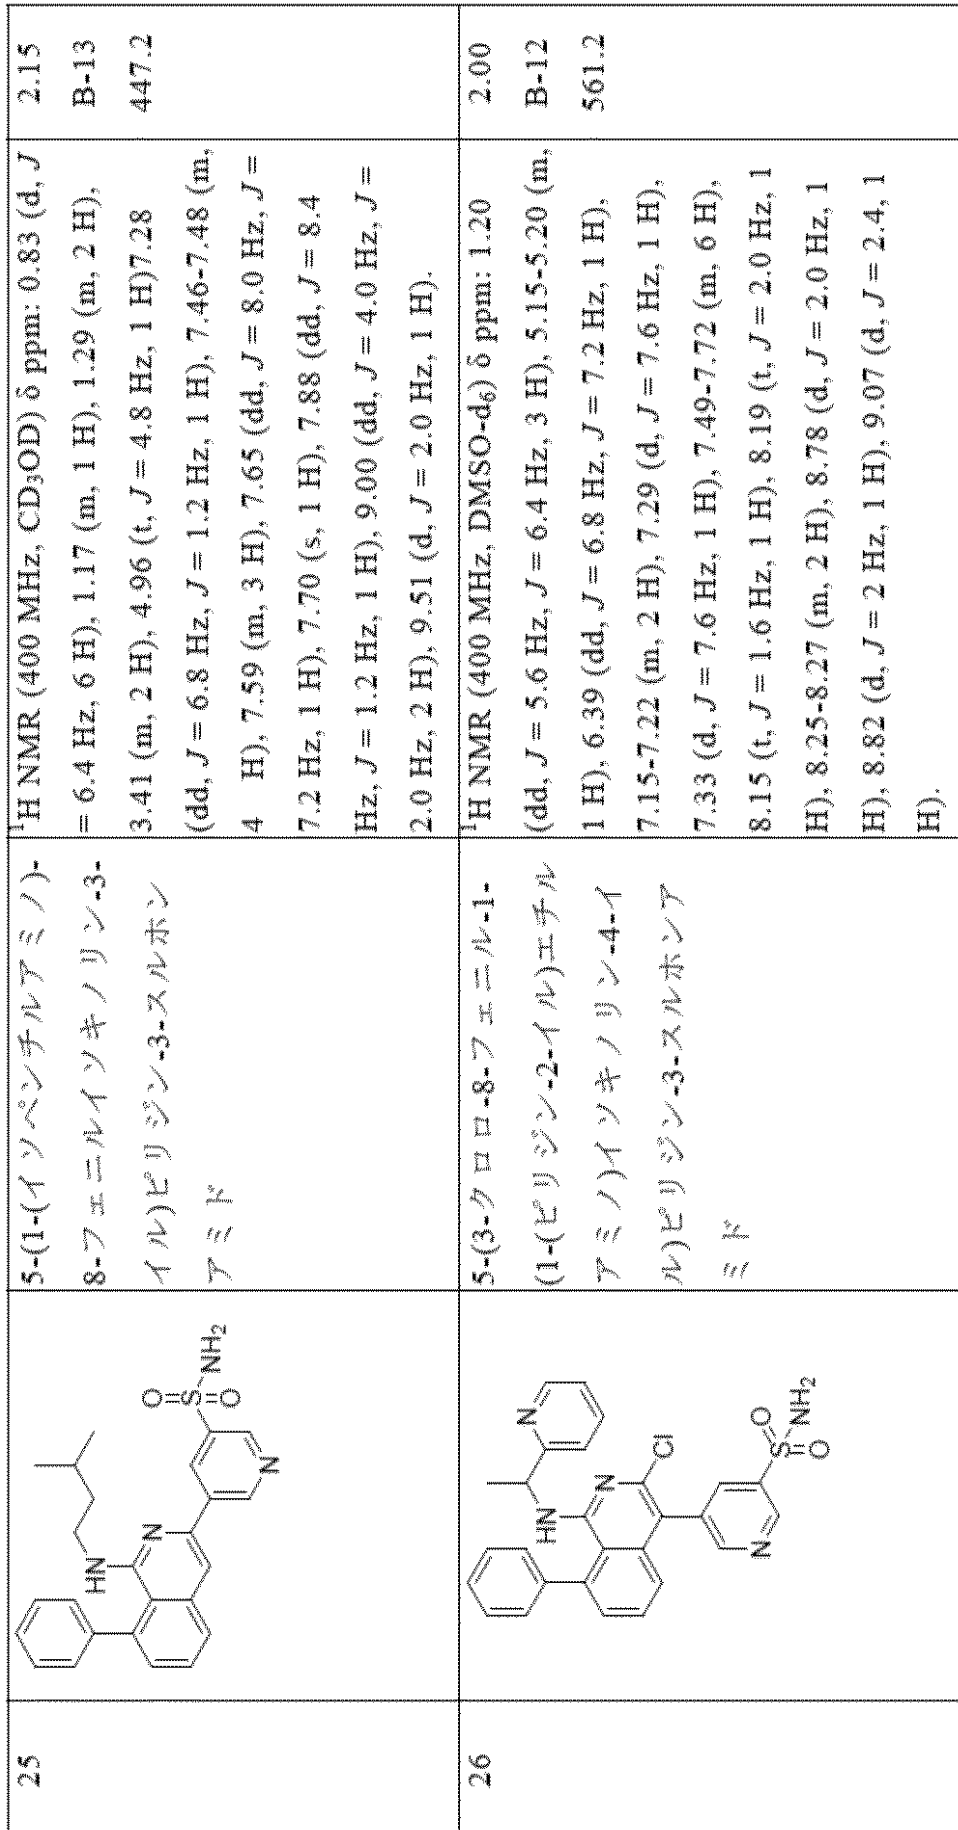 25
HN
N
N
O=S=O
NH2
5-(1-(イソペンチルアミノ)-
8-フェニルイソキノリン-3-
イル)ピリジン-3-スルホン
アミド
1H NMR (400 MHz, CD3OD) δ ppm: 0.83 (d, J
= 6.4 Hz, 6 H), 1.17 (m, 1 H), 1.29 (m, 2 H),
3.41 (m, 2 H), 4.96 (t, J = 4.8 Hz, 1 H)7.28
(dd, J = 6.8 Hz, J = 1.2 Hz, 1 H), 7.46-7.48 (m,
4 H), 7.59 (m, 3 H), 7.65 (dd, J = 8.0 Hz, J =
7.2 Hz, 1 H), 7.70 (s, 1 H), 7.88 (dd, J = 8.4
Hz, J = 1.2 Hz, 1 H), 9.00 (dd, J = 4.0 Hz, J =
2.0 Hz, 2 H), 9.51 (d, J = 2.0 Hz, 1 H).
2.15
B-13
447.2
26
N
HN
N
Cl
N
O
S
O
NH2
5-(3-クロロ-8-フェニル-1-
(1-(ピリジン-2-イル)エチル
アミノ)イソキノリン-4-イ
ル)ピリジン-3-スルホンア
ミド
1H NMR (400 MHz, DMSO-d6) δ ppm: 1.20
(dd, J = 5.6 Hz, J = 6.4 Hz, 3 H), 5.15-5.20 (m,
1 H), 6.39 (dd, J = 6.8 Hz, J = 7.2 Hz, 1 H),
7.15-7.22 (m, 2 H), 7.29 (d, J = 7.6 Hz, 1 H),
7.33 (d, J = 7.6 Hz, 1 H), 7.49-7.72 (m, 6 H),
8.15 (t, J = 1.6 Hz, 1 H), 8.19 (t, J = 2.0 Hz, 1
H), 8.25-8.27 (m, 2 H), 8.78 (d, J = 2.0 Hz, 1
H), 8.82 (d, J = 2 Hz, 1 H), 9.07 (d, J = 2.4, 1
H).
2.00
B-12
561.2